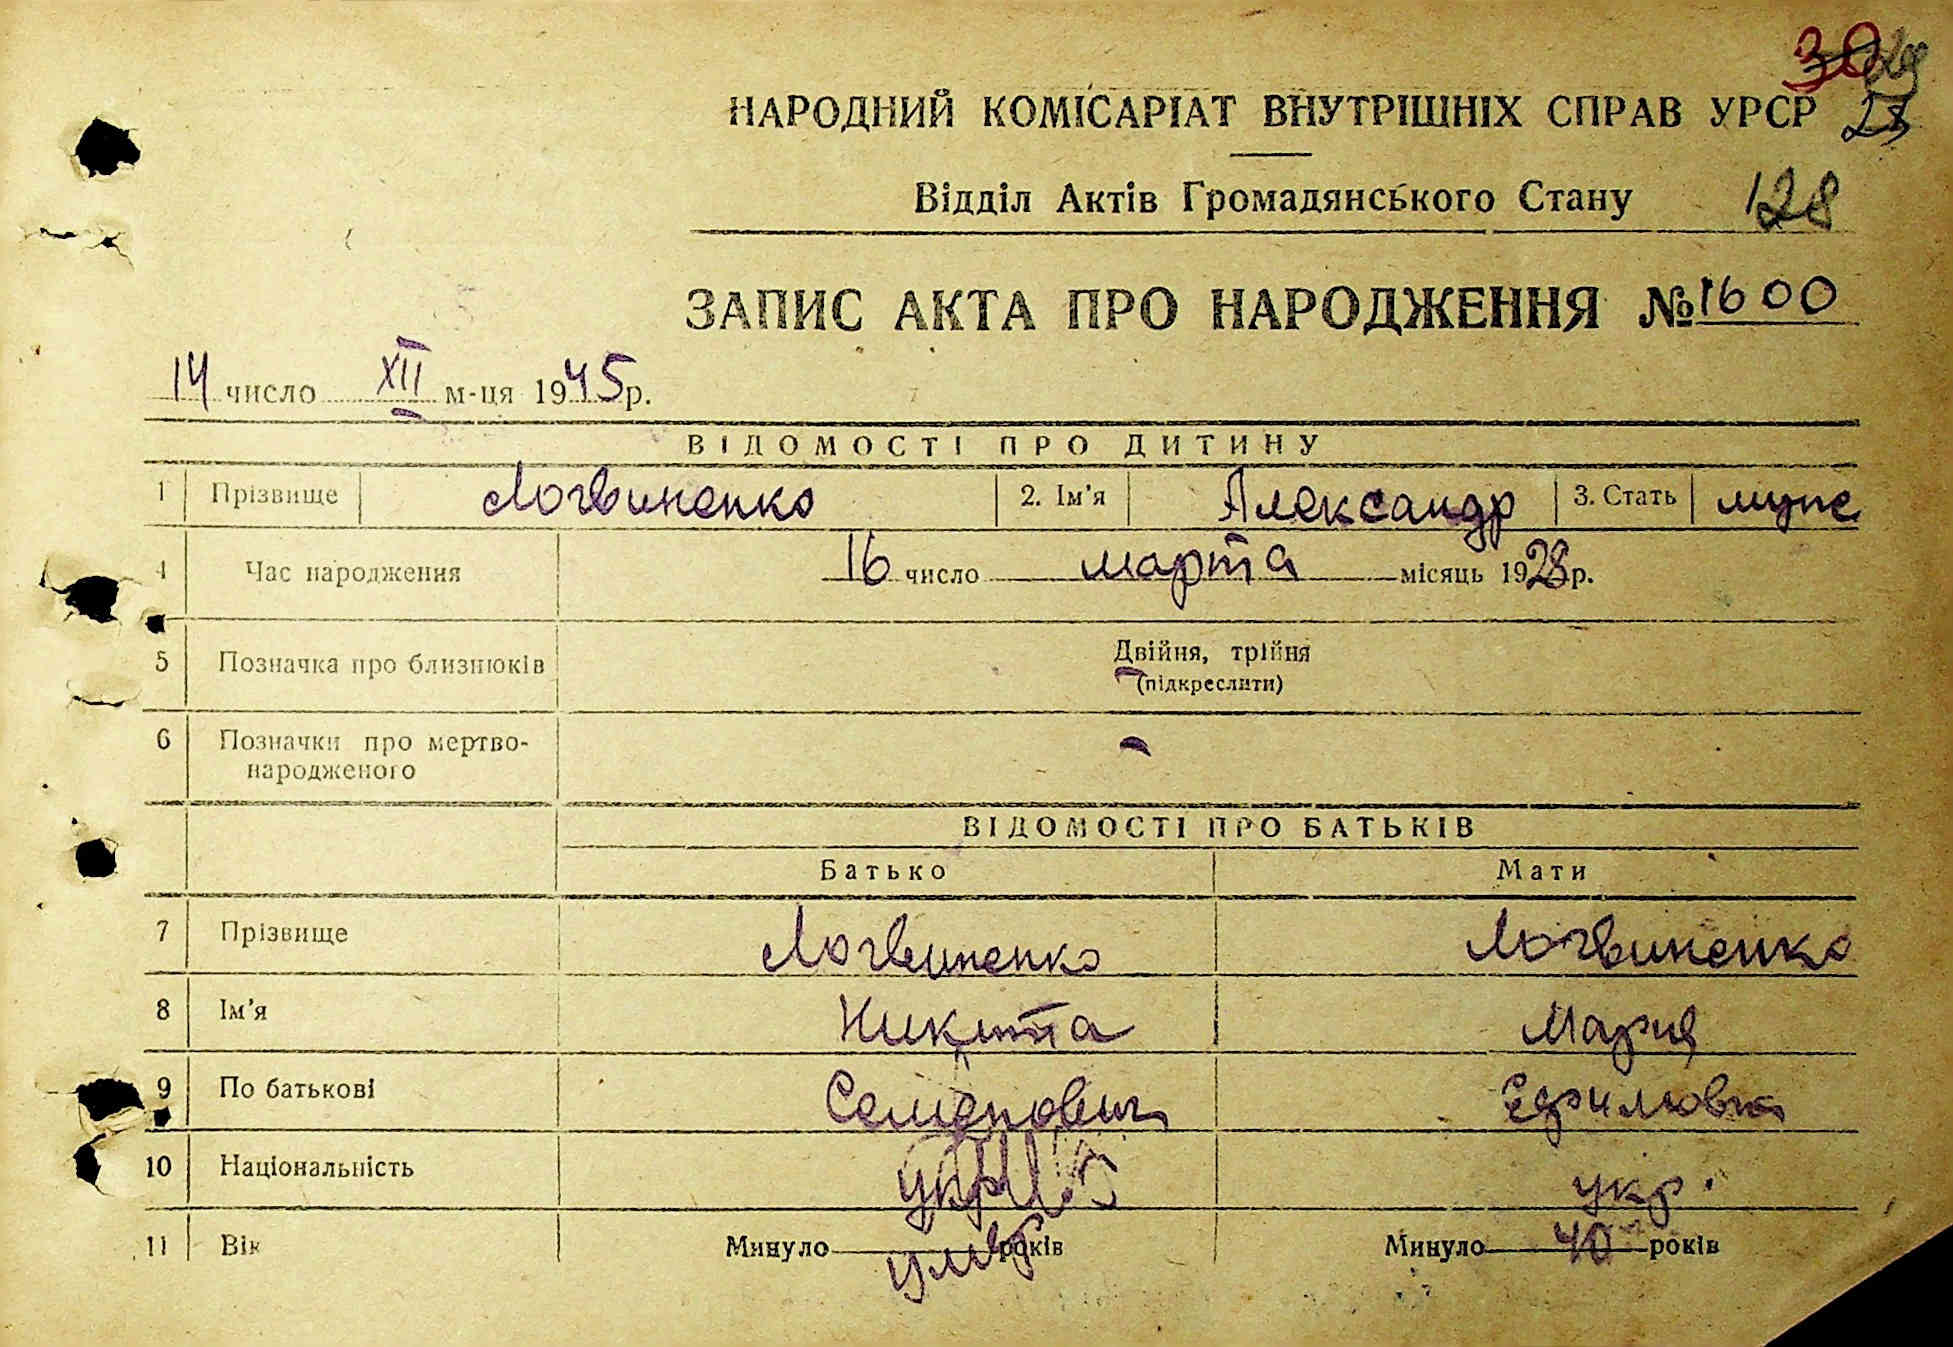 30 29
НАРОДНИЙ КОМІСАРІАТ ВНУТРІШНІХ СПРАВ УРСР 28
Відділ Актів Громадянського Стану 128
ЗАПИС АКТА ПРО НАРОДЖЕННЯ № 1600
14 число XII м-ця 1945 р.
ВІДОМОСТІ ПРО ДИТИНУ
1 Прізвище Логвиненко 2. Ім'я Александр 3. Стать муж
4 Час народження 16 число марта місяць 1928 р.
5 Позначка про близнюків Двійня, трійня
(підкреслити)
6 Позначки про мертво-
народженого
ВІДОМОСТІ ПРО БАТЬКІВ
Батько Мати
7 Прізвище Логвиненко Логвиненко
8 Ім'я Никита Мария
9 По батькові Семенович Ефимовна
10 Національність укр укр.
11 Вік Минуло умер років Минуло 40 років